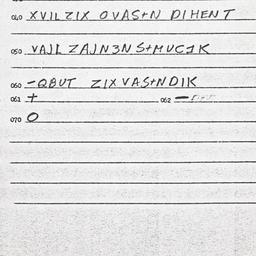 040 XVILZIX OVAS+N DIHENT
050 VAJL ZAJN3N S+MUCJK
060 -QBUT ZIXVAS+NDIK
061 + 062 -
070 O